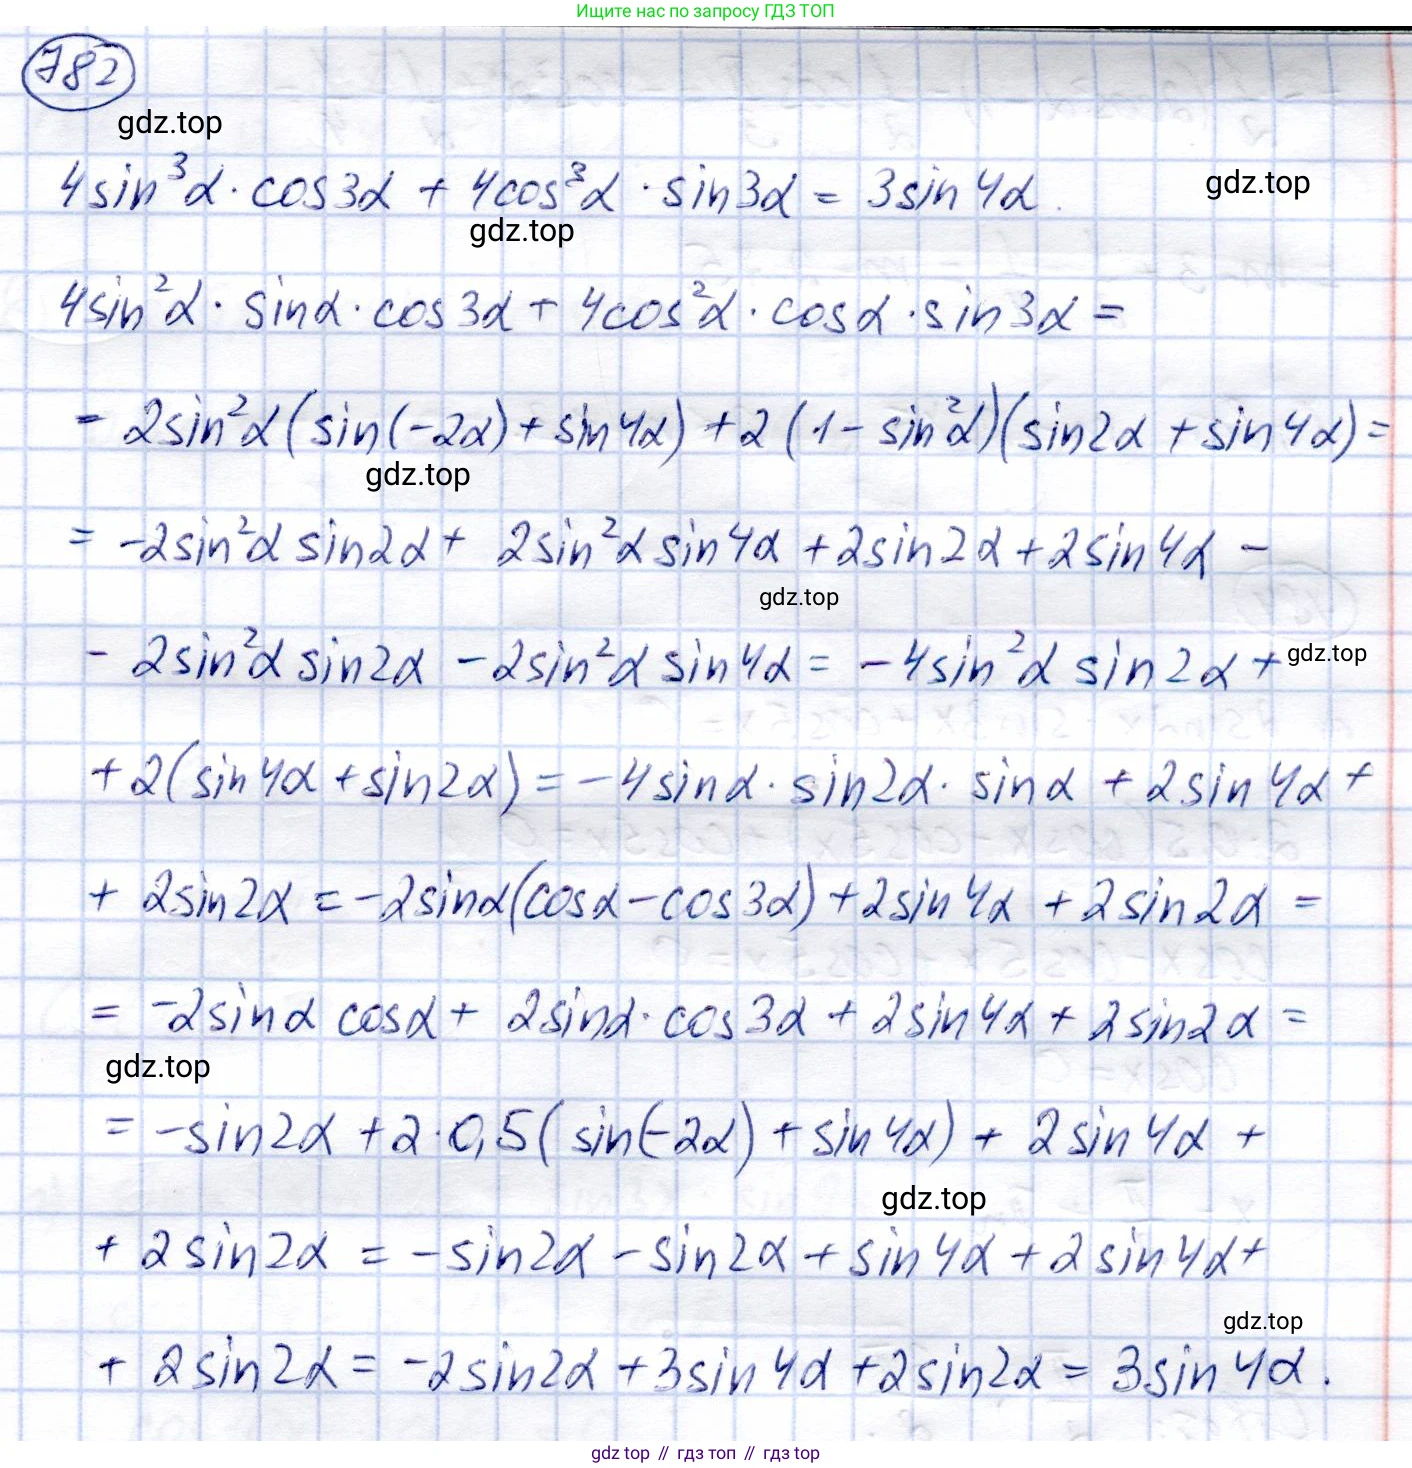 Ищите нас по запросу ГДЗ ТОП
782
gdz.top
4sin³α · cos3α + 4cos³α · sin3α = 3sin4α.
gdz.top
gdz.top
4sin²α · sinα · cos3α + 4cos²α · cosα · sin3α =
= 2sin²α(sin(-2α) + sin4α) + 2(1 - sin²α)(sin2α + sin4α) =
gdz.top
= -2sin²α sin2α + 2sin²α sin4α + 2sin2α + 2sin4α -
gdz.top
- 2sin²α sin2α - 2sin²α sin4α = -4sin²α sin2α +
gdz.top
+ 2(sin4α + sin2α) = -4sinα · sin2α · sinα + 2sin4α +
+ 2sin2α = -2sinα(cosα - cos3α) + 2sin4α + 2sin2α =
= -2sinα cosα + 2sinα · cos3α + 2sin4α + 2sin2α =
gdz.top
= -sin2α + 2 · 0,5(sin(-2α) + sin4α) + 2sin4α +
gdz.top
+ 2sin2α = -sin2α - sin2α + sin4α + 2sin4α +
gdz.top
+ 2sin2α = -2sin2α + 3sin4α + 2sin2α = 3sin4α.
gdz top // гдз топ // гдз top